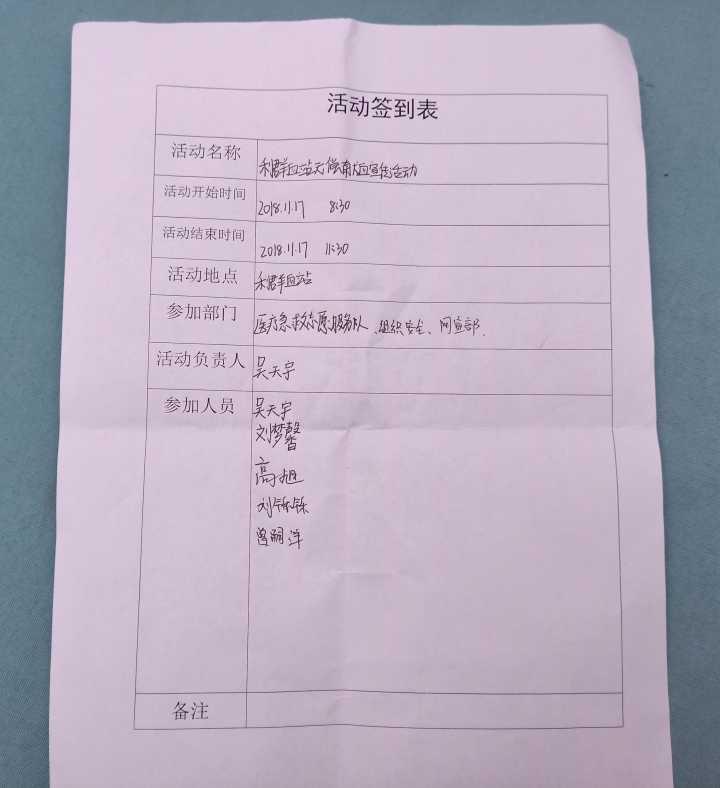 活动签到表
活动名称 利群血站无偿献血宣传活动
活动开始时间 2018.11.17 8:30
活动结束时间 2018.11.17 11:30
活动地点 利群血站
参加部门 医疗急救志愿服务队、组织安全、网宣部.
活动负责人 吴天宇
参加人员 吴天宇
刘梦馨
高旭
刘铄铄
曾嗣洋
备注